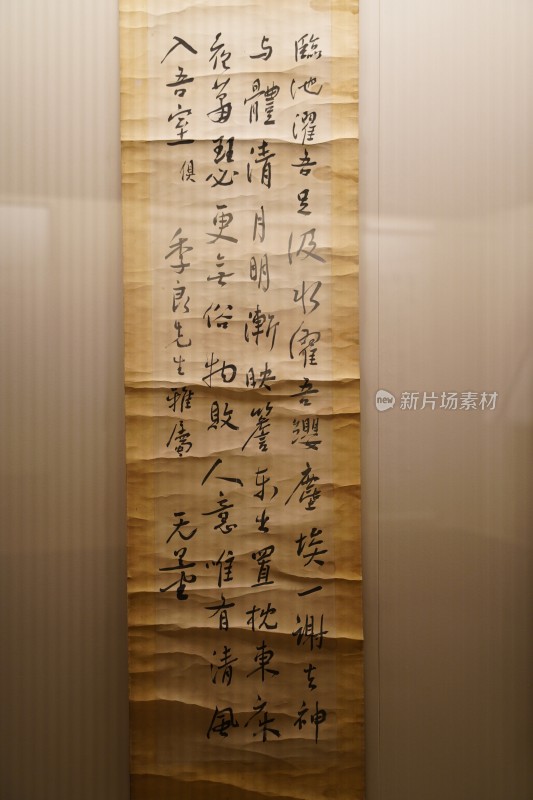 臨池濯吾足汲水濯吾纓塵埃一謝去神
与體清月明漸映簷东出置枕東床
夜蕭瑟更無俗物敗人意唯有清風
入吾室 俱 季良先生雅屬 无量
new 新片场素材